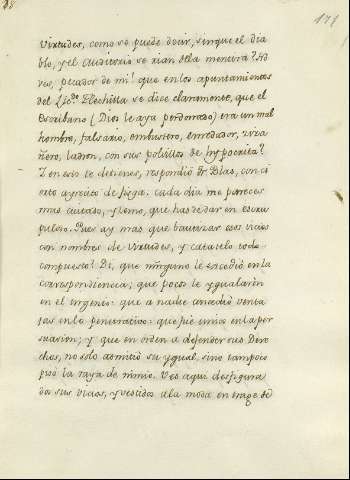 virtudes, como se puede decir, sin que el dia
blo, y el auditorio se rian de la mentira? No
ves, pecador de mi! que en los apuntamientos
del Lic.do Flechilla se dice claramente, que el
Escribano (Dios le aya perdonado) era un mal
hombre, falsario, embustero, enredador, ziza
ñero, ladron, con sus polvillos de hypocrita?
I en eso te detienes, respondió Fr. Blas, con ci
erto ayrecito de fisga: cada dia me pareces
mas cuitado, y temo, que has de dar en escru
puloso. Pues ay mas que bautizar esos vicios
con nombres de virtudes, y catatelo todo
compuesto? Di, que ninguno le excedió en la
correspondencia; que pocos le ygualaron
en el ingenio: que a nadie concedió venta
jas en lo penetrativo: que fue unico en la per
suasion; y que en orden a defender sus Dere
chos, no solo no admitió su ygual, sino tampoco
pisó la raya de nimio. Ves aqui desfigura
dos sus vicios, y vestidos a la moda en trage de